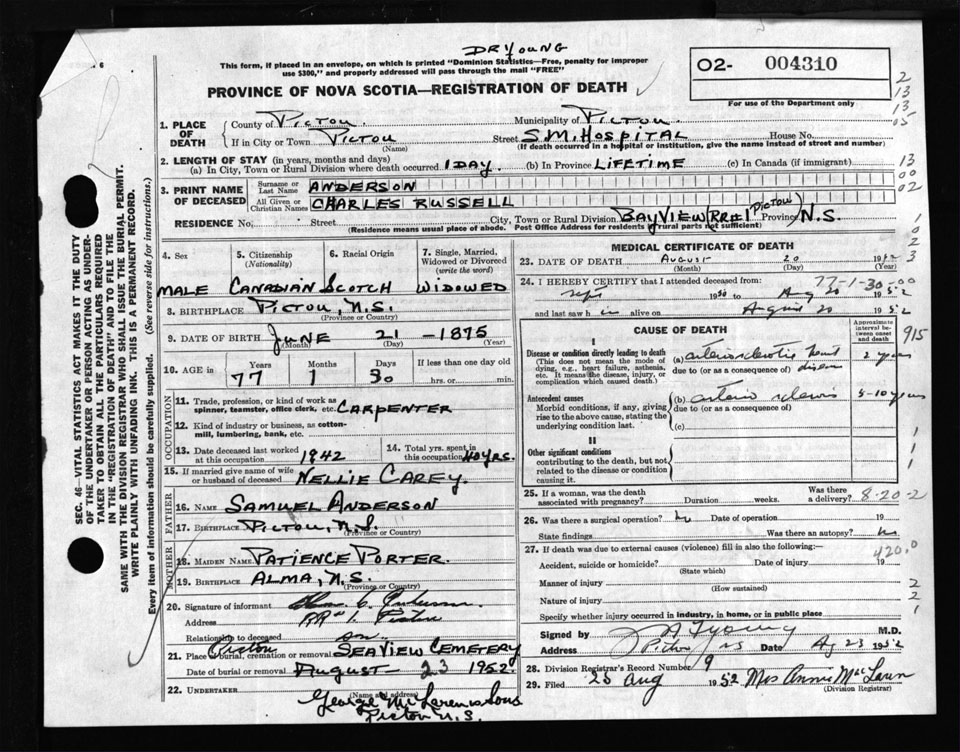 DR YOUNG
6
This form, if placed in an envelope, on which is printed "Dominion Statistics—Free, penalty for improper
use $300," and properly addressed will pass through the mail "FREE"
PROVINCE OF NOVA SCOTIA—REGISTRATION OF DEATH
02- 004310
For use of the Department only
2
13
13
05
13
00
02
1
0
2
3
SEC. 46—VITAL STATISTICS ACT MAKES IT THE DUTY
OF THE UNDERTAKER OR PERSON ACTING AS UNDER-
TAKER TO OBTAIN ALL THE PARTICULARS REQUIRED
IN THE "REGISTRATION OF DEATH" AND TO FILE THE
SAME WITH THE DIVISION REGISTRAR WHO SHALL ISSUE THE BURIAL PERMIT.
WRITE PLAINLY WITH UNFADING INK. THIS IS A PERMANENT RECORD.
Every item of information should be carefully supplied. (See reverse side for instructions.)
1. PLACE OF DEATH
County of PICTOU. Municipality of PICTOU.
If in City or Town PICTOU (Name) Street S.M. HOSPITAL House No.
(If death occurred in a hospital or institution, give the name instead of street and number)
2. LENGTH OF STAY (in years, months and days)
(a) In City, Town or Rural Division where death occurred 1 DAY. (b) In Province LIFETIME (c) In Canada (if immigrant)
3. PRINT NAME OF DECEASED
Surname or Last Name ANDERSON
All Given or Christian Names CHARLES RUSSELL
RESIDENCE No. Street City, Town or Rural Division BAYVIEW (RR#1 PICTOU) Province N.S.
(Residence means usual place of abode. Post Office Address for residents rural parts not sufficient)
4. Sex
MALE
5. Citizenship (Nationality)
CANADIAN
6. Racial Origin
SCOTCH
7. Single, Married, Widowed or Divorced (write the word)
WIDOWED
8. BIRTHPLACE PICTOU, N.S.
(Province or Country)
9. DATE OF BIRTH JUNE 21 -1875
(Month) (Day) (Year)
10. AGE in Years Months Days If less than one day old
77 1 30 hrs. or min.
OCCUPATION
11. Trade, profession, or kind of work as spinner, teamster, office clerk, etc. CARPENTER
12. Kind of industry or business, as cotton-mill, lumbering, bank, etc.
13. Date deceased last worked at this occupation 1942
14. Total yrs. spent in this occupation 40 YRS.
15. If married give name of wife or husband of deceased NELLIE CAREY.
FATHER
16. Name SAMUEL ANDERSON
17. Birthplace PICTOU, N.S.
(Province or Country)
MOTHER
18. MAIDEN NAME PATIENCE PORTER.
19. BIRTHPLACE ALMA, N.S.
(Province or Country)
20. Signature of informant
Address RR# 1. Pictou
Relationship to deceased son.
21. Place of burial, cremation or removal Pictou SEAVIEW CEMETERY
Date of burial or removal August 23 1952
22. UNDERTAKER George McLaren & Sons
(Name and address)
Pictou N.S.
MEDICAL CERTIFICATE OF DEATH
23. DATE OF DEATH AUGUST 20 1952
(Month) (Day) (Year)
77-1-30-00
24. I HEREBY CERTIFY that I attended deceased from:
1950 to Aug 20 1952
and last saw h im alive on August 20 1952
CAUSE OF DEATH
Approximate interval between onset and death
915
I
Disease or condition directly leading to death
(This does not mean the mode of dying, e.g., heart failure, asthenia, etc. It means the disease, injury, or complication which caused death.)
(a) arteriosclerotic heart disease 2 years
due to (or as a consequence of)
Antecedent causes
Morbid conditions, if any, giving rise to the above cause, stating the underlying condition last.
(b) arterio sclerosis 5-10 years
due to (or as a consequence of)
(c)
II
Other significant conditions
contributing to the death, but not related to the disease or condition causing it.
1
1
1
25. If a woman, was the death associated with pregnancy? Duration weeks. Was there a delivery? 8-20-2
26. Was there a surgical operation? No Date of operation 19
State findings Was there an autopsy? no
27. If death was due to external causes (violence) fill in also the following:
420.0
Accident, suicide or homicide? Date of injury 19
(State which)
Manner of injury
(How sustained)
Nature of injury
Specify whether injury occurred in industry, in home, or in public place
2
2
1
Signed by M.D.
Address Pictou NS Date Aug 23 1952
28. Division Registrar's Record Number 9
29. Filed 25 Aug 1952 Mrs Annie McLaren
(Division Registrar)